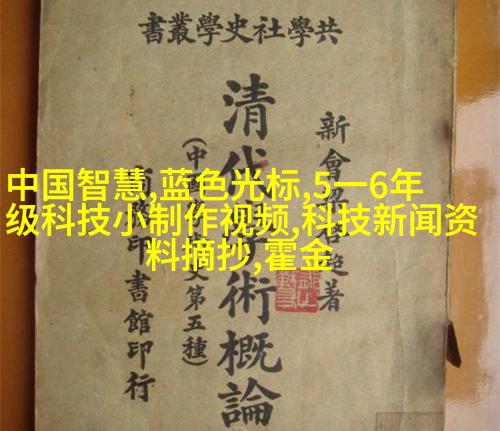 共學社史學叢書
新會超著
清代學術概論
(中史第五種)
印書館印行
中国智慧,蓝色光标,5一6年
级科技小制作视频,科技新闻资
料摘抄,霍金